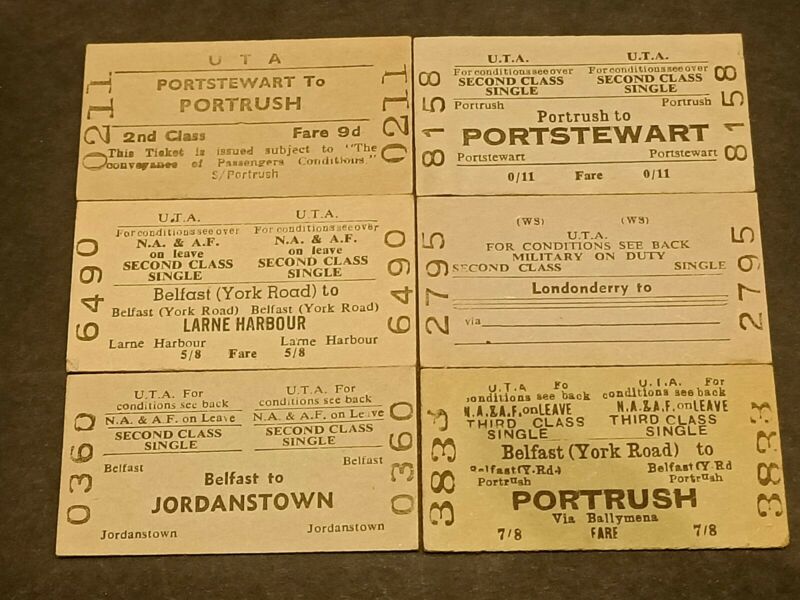 U T A
PORTSTEWART To
PORTRUSH
0211
0211
2nd Class Fare 9d
This Ticket is issued subject to "The
conveyance of Passengers Conditions."
S/Portrush
U.T.A. U.T.A.
For conditions see over For conditions see over
SECOND CLASS SECOND CLASS
SINGLE SINGLE
Portrush Portrush
8158
8158
Portrush to
PORTSTEWART
Portstewart Portstewart
0/11 Fare 0/11
U.T.A. U.T.A.
For conditions see over For conditions see over
N.A. & A.F. N.A. & A.F.
on leave on leave
SECOND CLASS SECOND CLASS
SINGLE SINGLE
6490
6490
Belfast (York Road) to
Belfast (York Road) Belfast (York Road)
LARNE HARBOUR
Larne Harbour Larne Harbour
5/8 Fare 5/8
(WS) (WS)
U.T.A.
FOR CONDITIONS SEE BACK
MILITARY ON DUTY
SECOND CLASS SINGLE
2795
2795
Londonderry to
via
U.T.A. For U.T.A. For
conditions see back conditions see back
N.A. & A.F. on Leave N.A. & A.F. on Leave
SECOND CLASS SECOND CLASS
SINGLE SINGLE
0360
0360
Belfast Belfast
Belfast to
JORDANSTOWN
Jordanstown Jordanstown
U.T.A Fo U.T.A. For
conditions see back conditions see back
N.A.&A.F. on LEAVE N.A.&A.F. on LEAVE
THIRD CLASS THIRD CLASS
SINGLE SINGLE
3833
3833
Belfast (York Road) to
Belfast (Y.Rd) Belfast (Y.Rd
Portrush Portrush
PORTRUSH
Via Ballymena
7/8 FARE 7/8